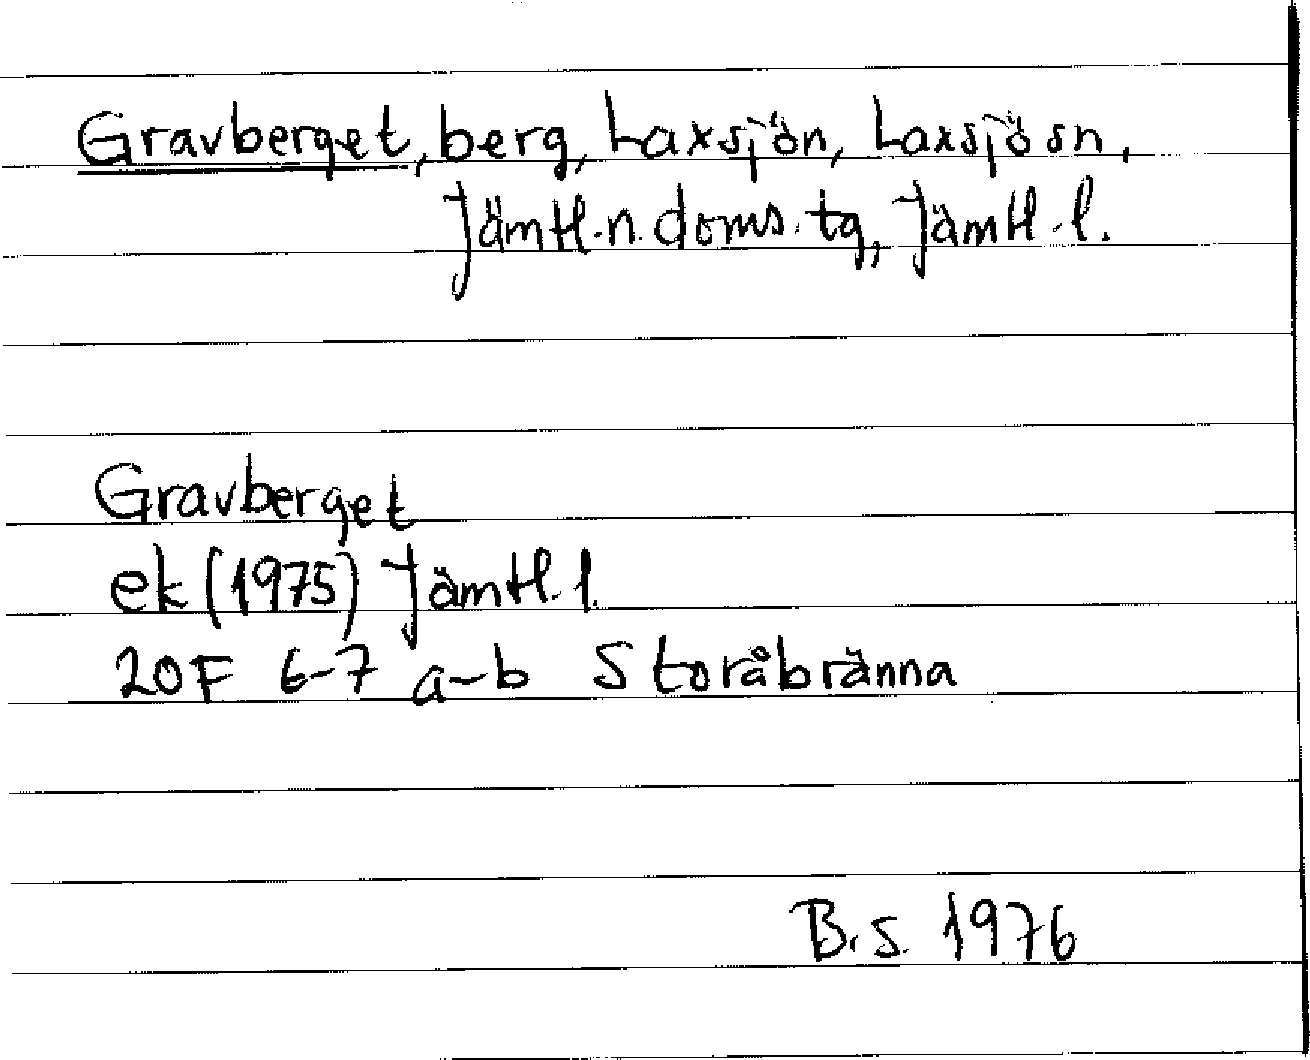 Gravberget, berg, Laxsjön, Laxsjö sn,
Jämtl. n. doms. tg, Jämtl. l.
Gravberget
ek (1975) Jämtl. l.
20F 6-7 a-b Storåbränna
B.S. 1976